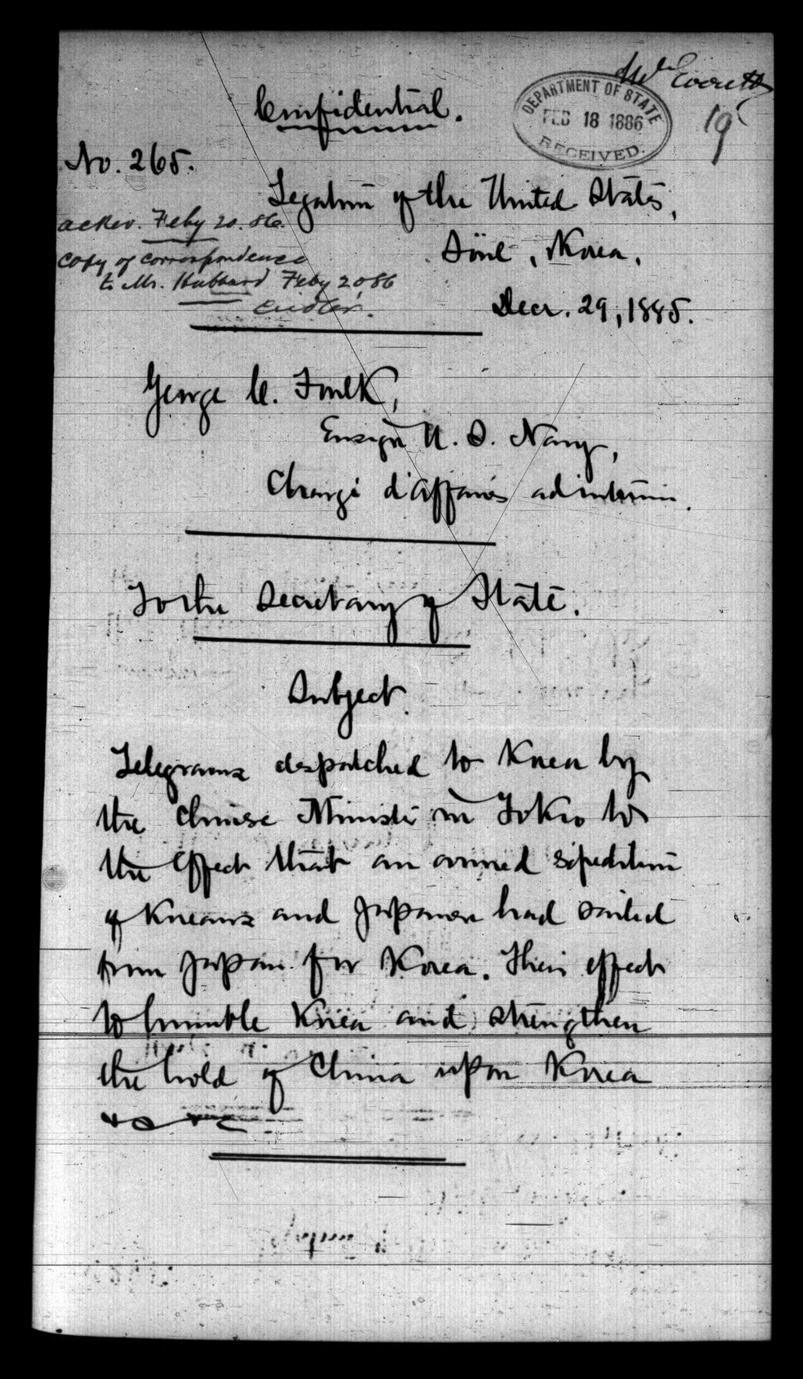 Confidential.
DEPARTMENT OF STATE
FEB 18 1886
RECEIVED.
19
No. 265.
Legation of the United States,
Söul, Korea.
Decr. 29, 1885.
Feby 20. 86.
Copy of correspondence
to Mr. Hubbard Feby 20 86
George C. Foulk,
Ensign U. S. Navy,
Chargé d'Affaires ad interim.
To the Secretary of State.
Subject.
Telegrams despatched to Korea by
the Chinese Minister in Tokio to
the effect that an armed expedition
of Koreans and Japanese had sailed
from Japan for Korea. Their effect
to humble Korea and strengthen
the hold of China upon Korea